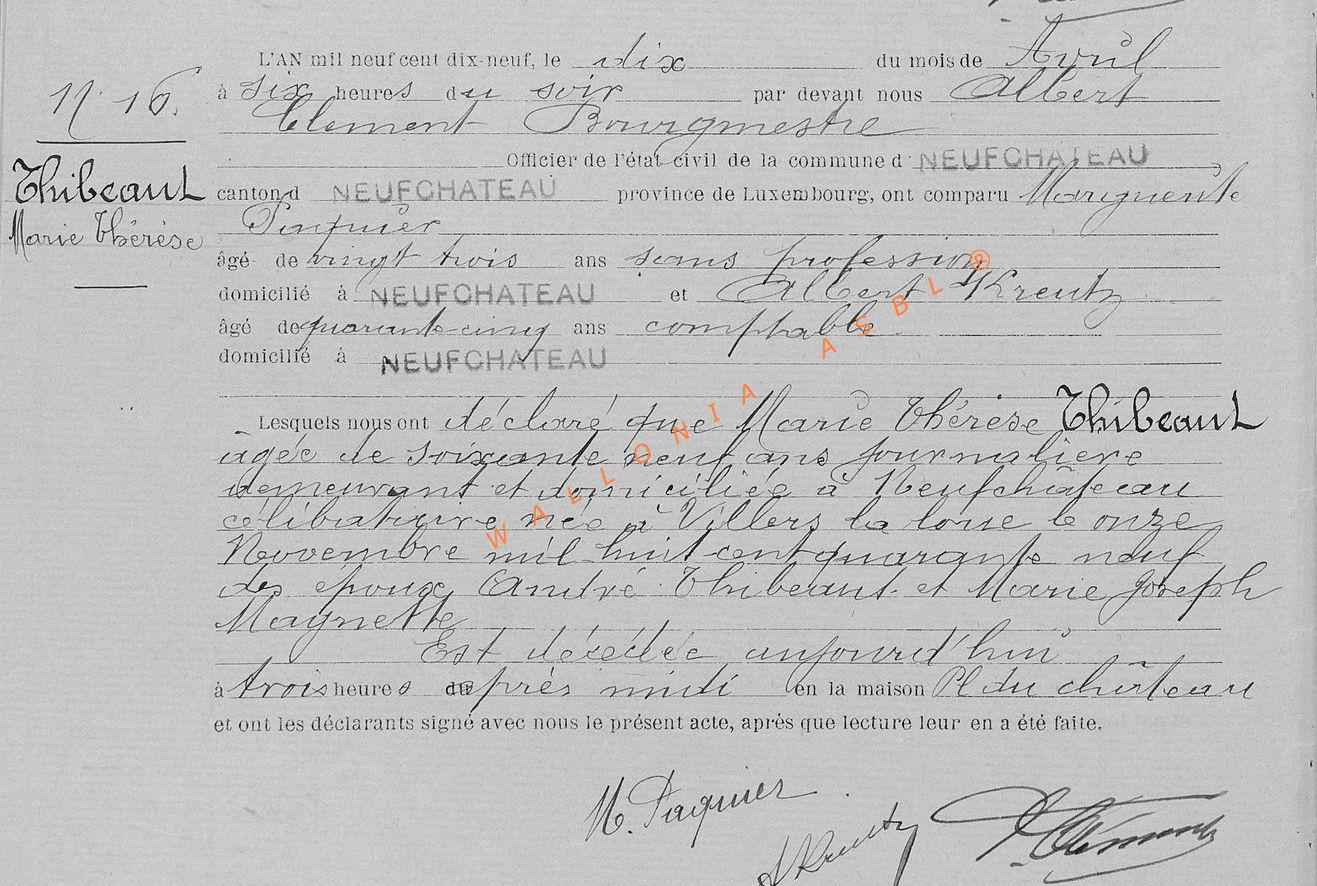 L'AN mil neuf cent dix-neuf, le dix du mois de Avril
N° 16.
à six heures du soir par devant nous Albert
Clement Bourgmestre
Officier de l'état civil de la commune d NEUFCHATEAU
Thibeaut
canton d NEUFCHATEAU province de Luxembourg, ont comparu Marguerite
Marie Thérèse
Paquier
âgé de vingt trois ans sans profession
domicilié à NEUFCHATEAU et Albert Kreutz
âgé de quarante-cinq ans comptable
domicilié à NEUFCHATEAU
Lesquels nous ont déclaré que Marie Thérèse Thibeaut
âgée de soixante neuf ans journalière
demeurant et domiciliée à Neufchâteau
célibataire née à Villers la loue le onze
Novembre mil huit cent quarante neuf
des époux André Thibeaut et Marie Joseph
Magnette
Est décédée aujourd'hui
à trois heures du après midi en la maison Pl du château
et ont les déclarants signé avec nous le présent acte, après que lecture leur en a été faite.
M. Paquier
A Kreutz
A Clement
WALLONIA ASBL ®